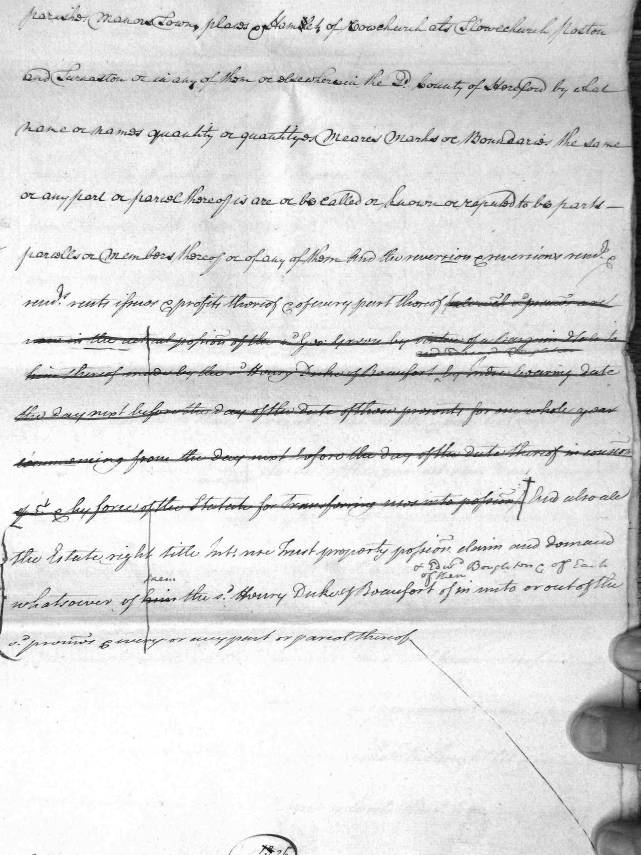 parishes Manors Towns places & Hamlets of Rowchurch als Slowchurch Poston
and Turnaston or in any of them or elsewhere in the sd. County of Hereford by what
name or names quantity or quantityes Meares Marks or Boundaries the same
or any part or parcel thereof is are or be called or known or reputed to be parts —
parcells or Members thereof or of any of them And the reversion & reversions remdr. &
remdrs. rents issues & profits thereof & of every part thereof
now in the actual possion of the sd. by virtue of a Bargain & Sale to
him thereof made by the sd. Henry Duke of Beaufort by Indre bearing date
the day next before the day of the date of these presents for one whole year
commencing from the day next before the day of the date thereof in
& by force of the Statute for transferring uses into possion And also all
the Estate right title Int. use Trust property possion claim and demand
& Edwd. Boughton & of Each
them of them
whatsoever of him the sd. Henry Duke of Beaufort of in unto or out of the
sd. premes & every or any part or parcel thereof